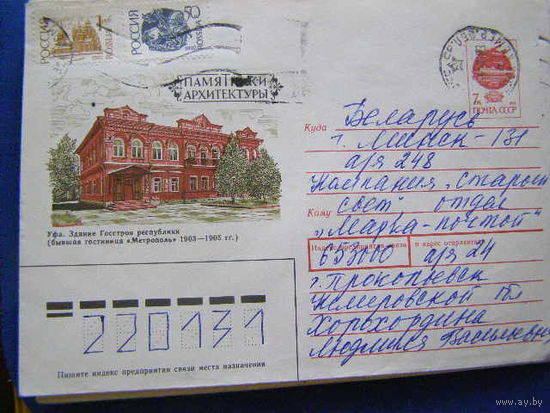 РОССИЯ 1 ROSSIJA
РОССИЯ 50 ROSSIJA
7к ПОЧТА СССР
ПАМЯТНИКИ
АРХИТЕКТУРЫ
Уфа. Здание Госстроя республики
(бывшая гостиница «Метрополь» 1903—1905 гг.)
Куда Беларусь
г. Минск-131
а/я 248
Компания „Старый
Кому свет" отдел
„Марка-почтой"
Индекс предприятия связи и адрес отправителя
653000 а/я 24
г. Прокопьевск
Кемеровской
Хорохордина
Людмила
220131
Пишите индекс предприятия связи места назначения
www.ay.by